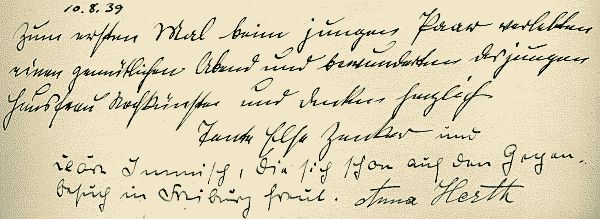 10.8.39
Zum ersten Mal beim jungen Paar verlebten
einen gemütlichen Abend und bewunderten der jungen
Hausfrau Kochkünste und danken herzlich
Tante Else Zenker und
Immisch, die sich schon auf den Gegen-
besuch in Freiburg freut. Anna Herth